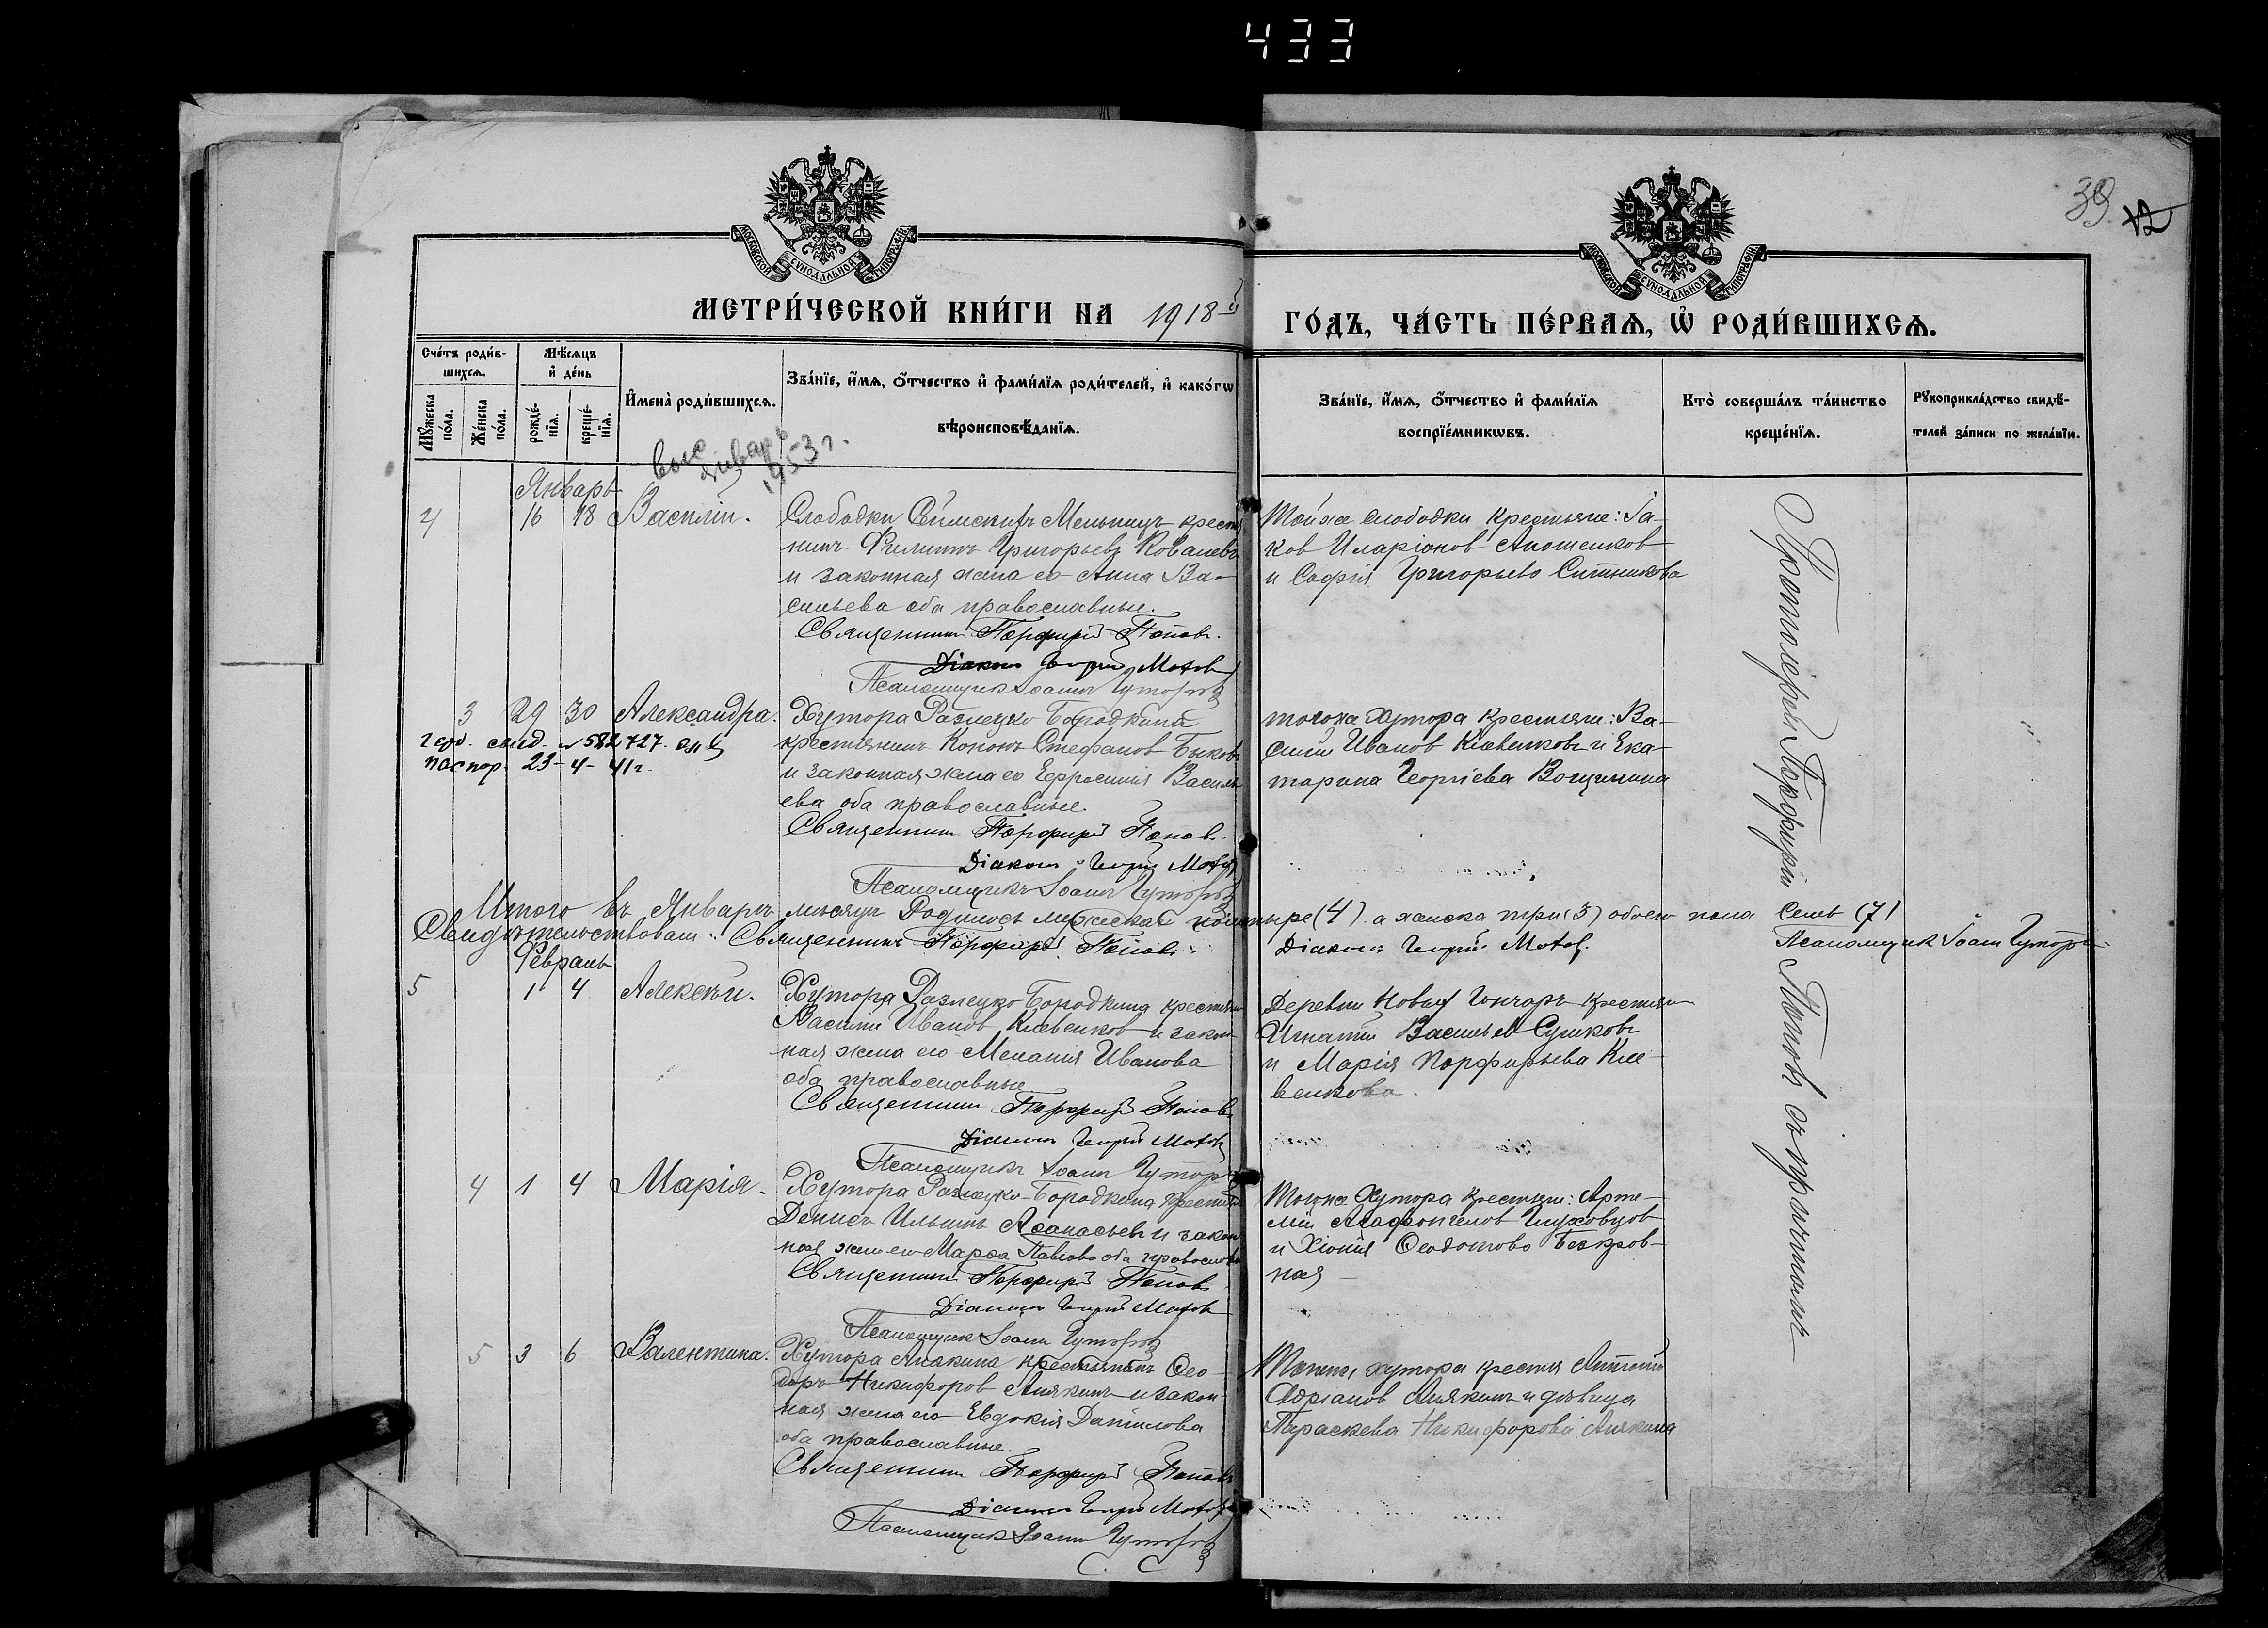 433
39
12
МОСКОВСКОЙ СѴНОДАЛЬНОЙ ТИПОГРАФІИ
МОСКОВСКОЙ СѴНОДАЛЬНОЙ ТИПОГРАФІИ
МЕТРИ́ЧЕСКОЙ КНИ́ГИ НА 1918 й ГО́ДЪ, ЧА́СТЬ ПЕ́РВАѦ, Ѽ РОДИ́ВШИХСѦ.
Сче́тъ роди́в-
шихсѧ.
Мꙋ́жеска по́ла.
Же́нска по́ла.
Мѣ́сѧцъ и҆ де́нь
рожде́-нїѧ.
креще́-нїѧ.
И҆мена̀ роди́вшихсѧ.
Зва́нїе, и҆́мѧ, ѻ҆́тчество и҆ фами́лїѧ роди́телей, и҆ како́гѡ
вѣроисповѣ́данїѧ.
Зва́нїе, и҆́мѧ, ѻ҆́тчество и҆ фами́лїѧ
воспрїе́мникѡвъ.
Кто̀ соверша́лъ та́инство
креще́нїѧ.
Рꙋкоприкла́дство свидѣ́-
телей за́писи по жела́нїю.
январь
1953 г.
Январь
4 16 18 Василій.
Слободки Мельницъ кресть
нинъ Филиппъ Григорьевъ Ковалевъ
и законная жена его Анна Ва-
сильева оба православные.
Священникъ Порфирій Поповъ.
Діаконъ Георгій Мотовъ
Псаломщикъ Іоаннъ
Тойже слободки крестьяне: Іа-
ков Иларіонов
и Софія Григорьева Ситникова
3 29 30 Александра.
Хутора Разлецко-Бородкина
крестьянинъ Кононъ Стефанов Быковъ
и законная жена его Евфросинія Василь
ева оба православные.
Священникъ Порфирій Поповъ.
Діаконъ Георгій Мотовъ
Псаломщикъ Іоаннъ
тогоже хутора крестьяне: Ва-
силій Иванов Клевенковъ и Ека-
терина Георгіева
свид. № 582727
паспор. 23-4-41 г.
Итого въ Январѣ мѣсяцѣ родилось мужеска четыре (4) а женска три (3) обоего пола семь (7)
Свидѣтельствовали: Священникъ Порфирій Поповъ. Діаконъ Георгій Мотовъ. Псаломщикъ Іоаннъ
Февраль
5 1 4 Алексѣй.
Хутора Разлецко Бородкина крестьян
Василій Иванов Клевенков и закон
ная жена его Меланія Иванова
оба православные
Священникъ Порфирій Поповъ
Діаконъ Георгій Мотовъ
Псаломщикъ Іоаннъ
Деревни Новый Гончаръ крестьян
Игнатій Васильев Сушковъ
и Марія Порфирьева Кле-
венкова.
4 1 4 Марія.
Хутора Разлецко-Бородкина крестьян
Денисъ Ильинъ Аѳанасьевъ и закон
ная жена его Марѳа Павлова оба православ
Священникъ Порфирій Поповъ
Діаконъ Георгій Мотовъ
Псаломщикъ Іоаннъ
Тогоже хутора крестьяне: Арте-
мій Агафонгелов Глуховцов
и Хіонія Ѳеодотова Безкров-
ная
5 3 6 Валентина.
Хутора Анякина крестьянинъ Ѳео-
доръ Никифоров Анякинъ и закон
ная жена его Евдокія Даніилова
оба православные.
Священникъ Порфирій Поповъ
Діаконъ Георгій Мотовъ
Псаломщикъ Іоаннъ
Тогоже хутора крестьян Антоній
Адріанов Анякинъ и дѣвица
Параскева Никифорова Анякина
Протоіерей Порфирій Поповъ съ причтомъ